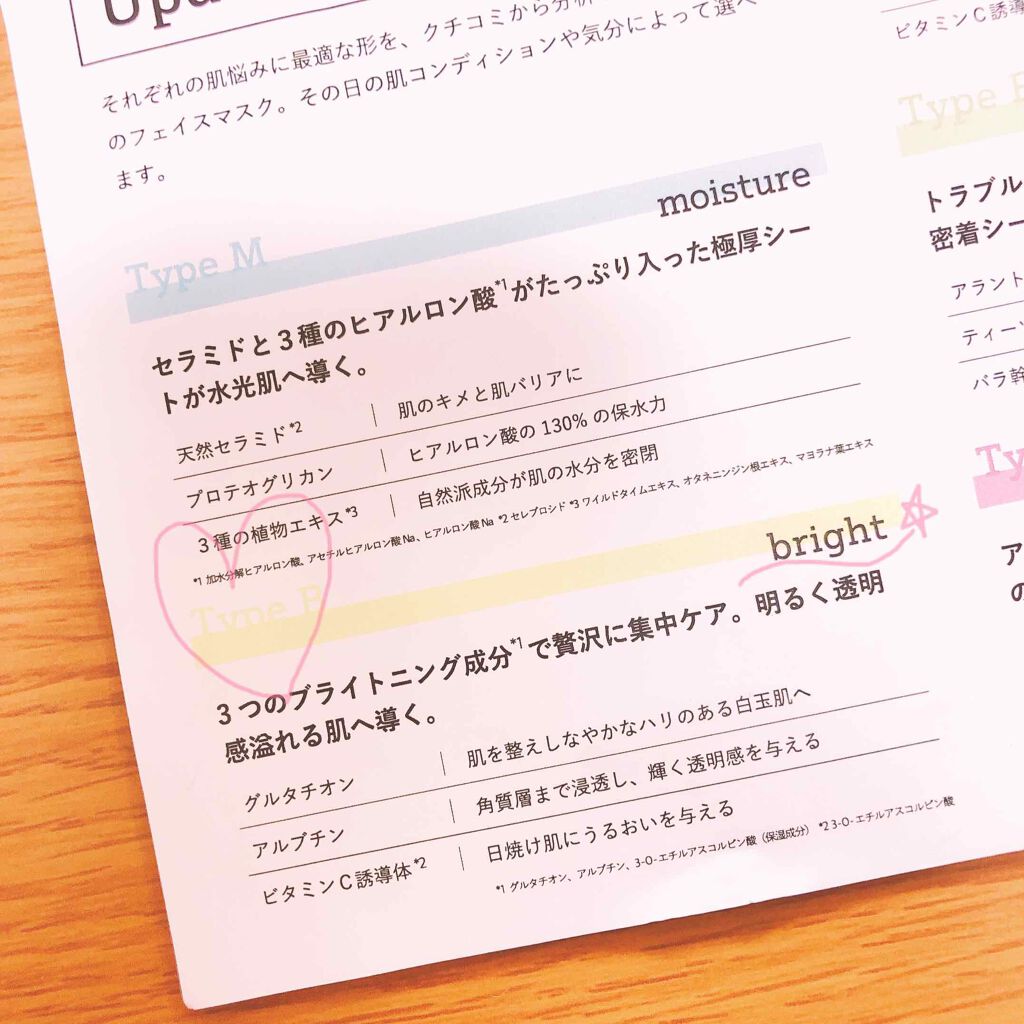 Upda
それぞれの肌悩みに最適な形を、クチコミから分析
のフェイスマスク。その日の肌コンディションや気分によって選べ
ます。
Type M
moisture
セラミドと3種のヒアルロン酸*1がたっぷり入った極厚シー
トが水光肌へ導く。
天然セラミド*2 | 肌のキメと肌バリアに
プロテオグリカン | ヒアルロン酸の 130% の保水力
3種の植物エキス*3 | 自然派成分が肌の水分を密閉
*1 加水分解ヒアルロン酸、アセチルヒアルロン酸 Na、ヒアルロン酸 Na *2 セレブロシド *3 ワイルドタイムエキス、オタネニンジン根エキス、マヨラナ葉エキス
Type B
bright
3つのブライトニング成分*1で贅沢に集中ケア。明るく透明
感溢れる肌へ導く。
グルタチオン | 肌を整えしなやかなハリのある白玉肌へ
アルブチン | 角質層まで浸透し、輝く透明感を与える
ビタミンC誘導体*2 | 日焼け肌にうるおいを与える
*1 グルタチオン、アルブチン、3-O-エチルアスコルビン酸（保湿成分） *2 3-O-エチルアスコルビン酸
ビタミンC誘導
Type
トラブル
密着シー
アラント
ティー
バラ幹
Ty
ア
の